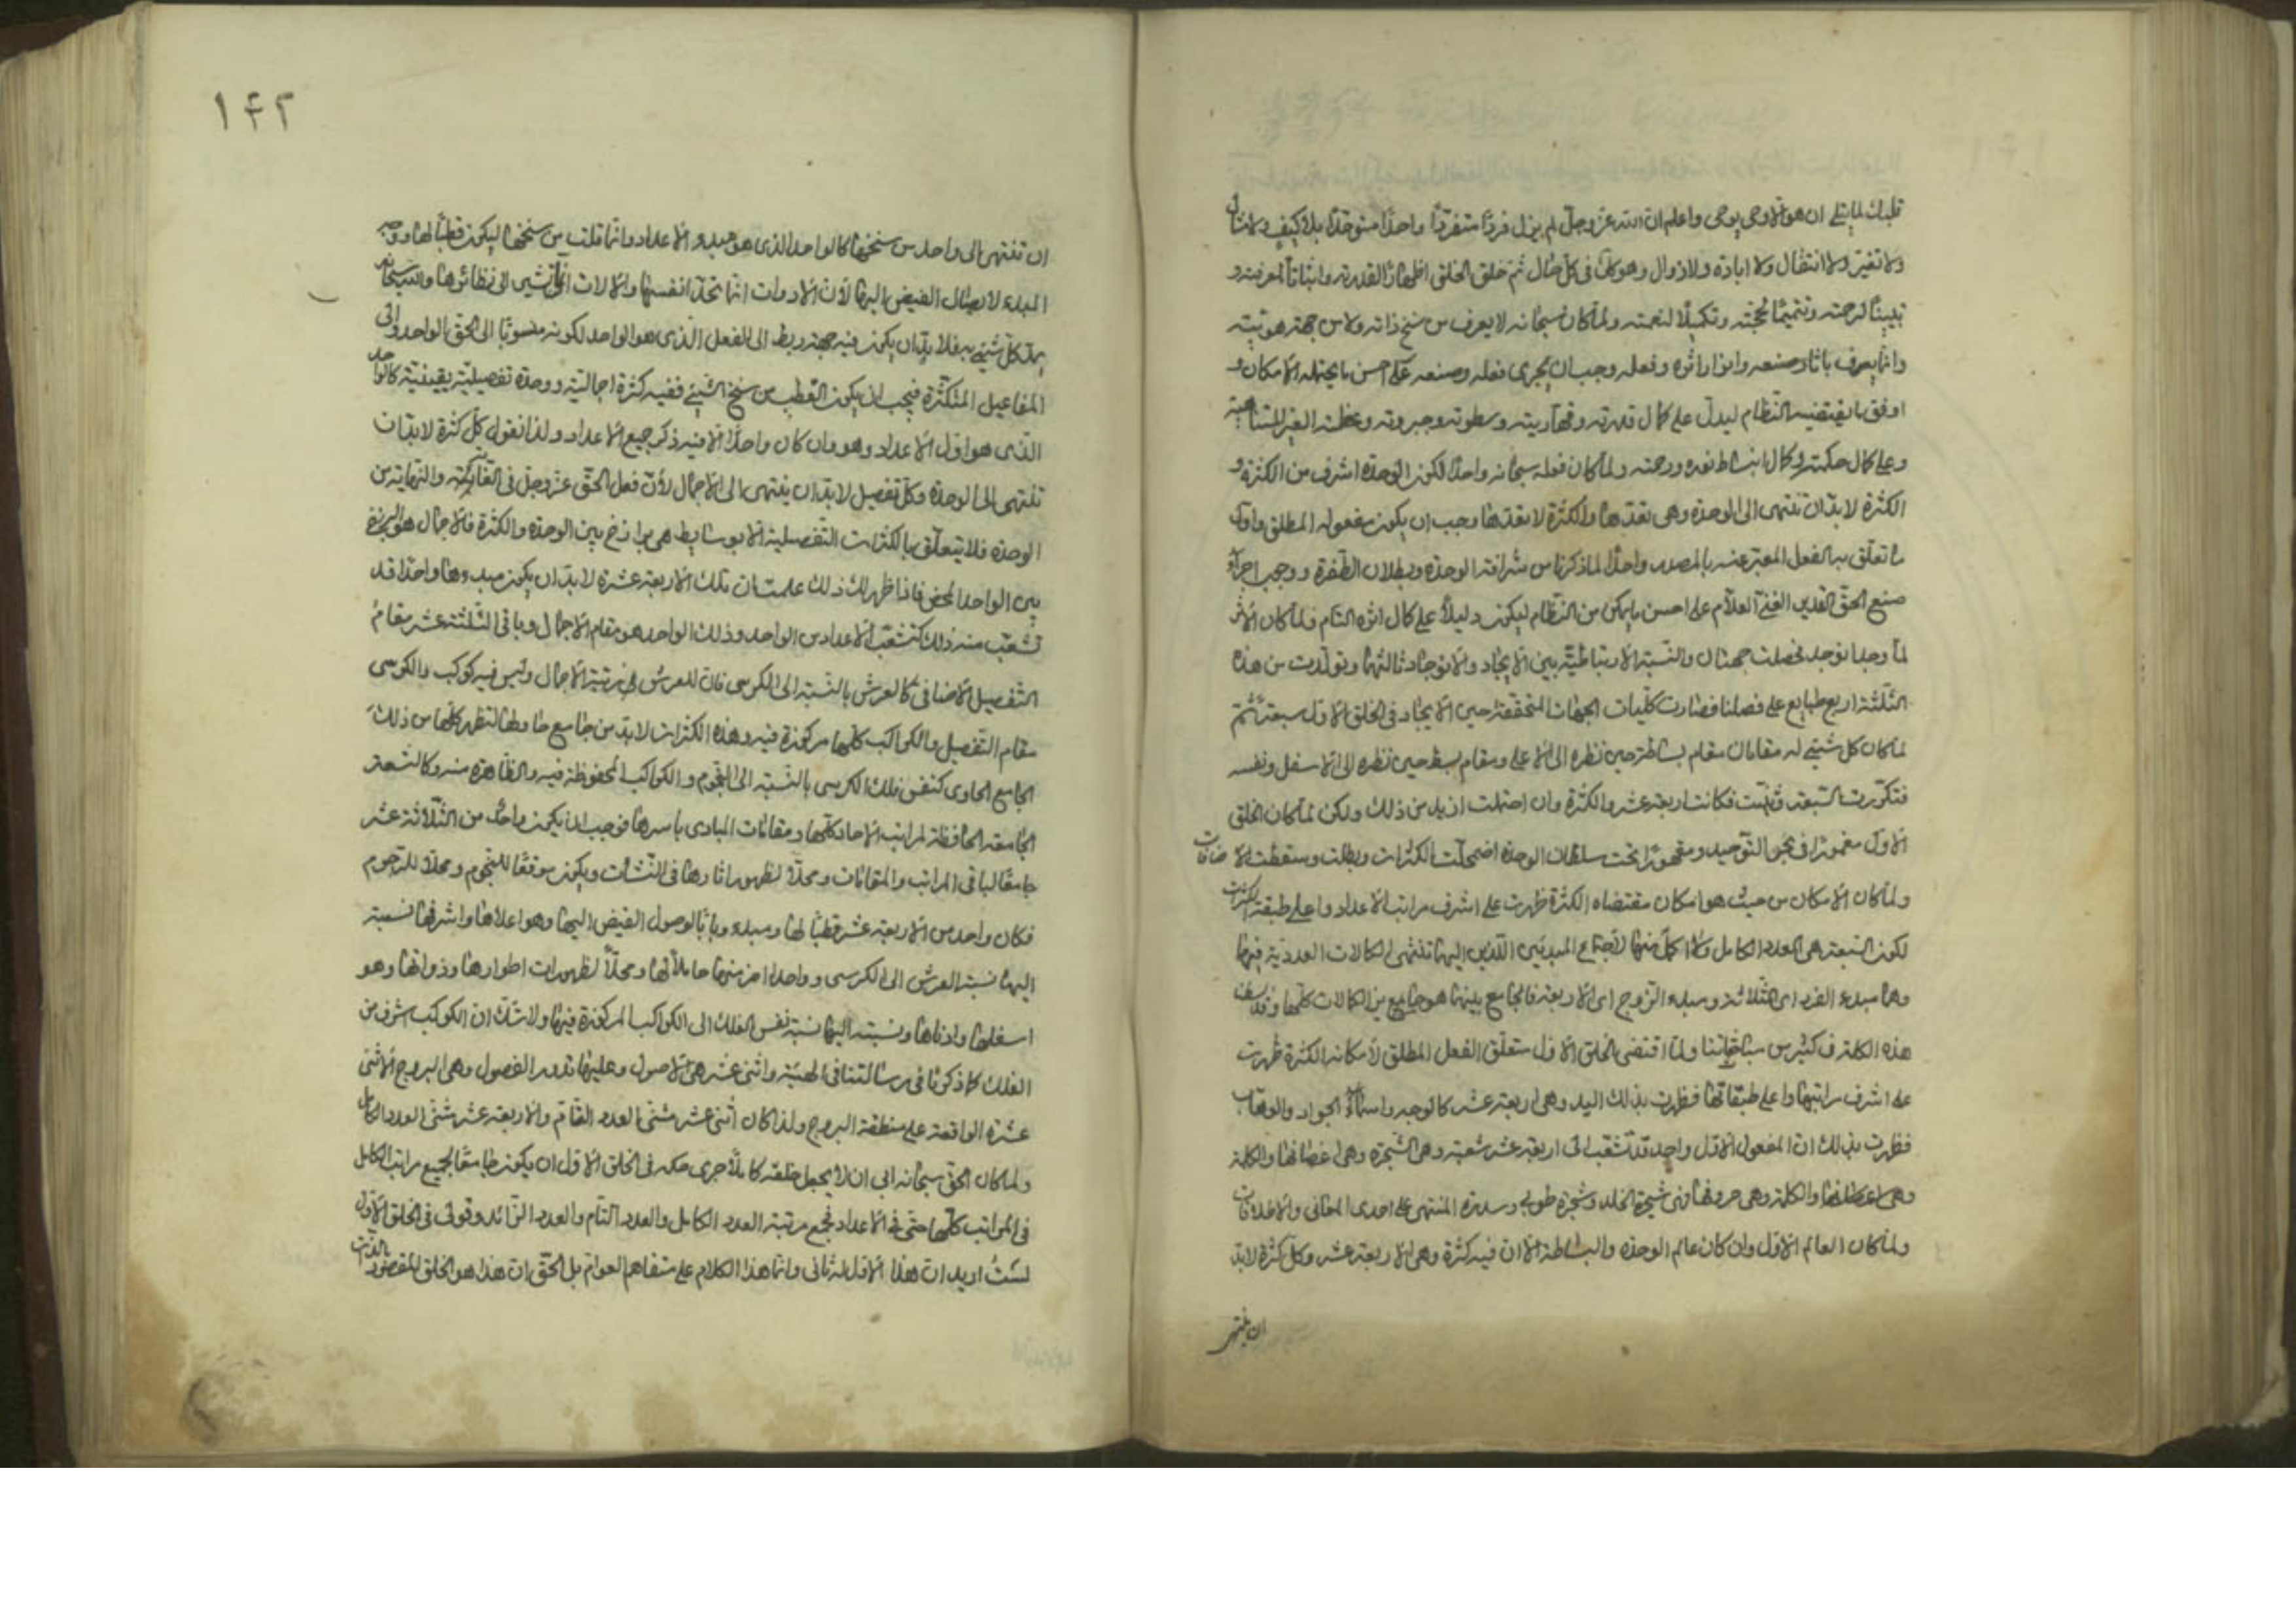 قلبك لما يتلى ان هو الا وحي يوحى واعلم ان الله عز وجل لم يزل فردا متفردا واحدا متوحدا بلا كيف ولا مثال
ولا تغير ولا انتقال ولا ابادة ولا زوال وهو كان في كل حال ثم خلق الخلق اظهارا لقدرته واثباتا لمعرفته و
تبيينا لرحمته وتتميما لحجته وتكميلا لنعمته ولما كان سبحانه لا يعرف من سنخ ذاته ولا من جهة هويته
وانما يعرف باثار صنعه وانوار اثره وفعله وجب ان يجري فعله وصنعه على احسن ما يحتمله الامكان و
اوفق ما يقتضيه النظام ليدل على كمال قدرته وقهاريته وسطوته وجبروته وعظمته الغير المتناهية
وعلى كمال حكمته وكمال انبساط نعمه ورحمته ولما كان فعله سبحانه واحدا لكون الوحدة اشرف من الكثرة و
الكثرة لا بد ان تنتهي الى الوحدة وهي تفقدها والكثرة لا تفقدها وجب ان يكون مفعوله المطلق واول
ما تعلق به الفعل المعبر عنه بالمصدر واحدا لما ذكرنا من شرافة الوحدة وبطلان الطفرة ووجوب اجراء
صنع الحق القديم الغني العلام على احسن ما يمكن من النظام ليكون دليلا على كمال اثره التام فلما كان الاثر
لما وجد انوجد فحصلت جهتان والنسبة الارتباطية بين الايجاد والانوجاد ثالثهما وتولدت من هذه
الثلثة اربع طبايع على ما فصلنا فصارت كليات الجهات المتحققة حين الايجاد في الخلق الاول سبعة ثم
لما كان كل شيئ له مقامان مقام بساطة حين نظره الى الاعلى ومقام بسط حين نظره الى الاسفل ونفسه
فتكررت السبعة وثنيت فكانت اربعة عشر والكثرة وان احتملت ازيد من ذلك ولكن لما كان الخلق
الاول مغمورا في بحر التوحيد ومقهورا تحت سلطان الوحدة اضمحلت الكثرات وبطلت وسقطت الاضافات
ولما كان الامكان من حيث هو امكان مقتضاه الكثرة ظهرت على اشرف مراتب الاعداد واعلى طبقة الكثرات
لكون السبعة هي العدد الكامل ولا اكمل منها لاجتماع المبدئين اللذين اليهما تنتهي الكمالات العددية فيها
وهما مبدء الفرد اي الثلاثة ومبدء الزوج اي الاربعة فالجامع بينهما هو جامع بين الكمالات كلها وقد
هذه الكلمة في كثير من مباحثاتنا ولما اقتضى الخلق الاول متعلق الفعل المطلق لامكانه الكثرة ظهرت
على اشرف مراتبها واعلى طبقاتها فظهرت بذلك اليد وهي اربعة عشر كالوجه واسمائه الجواد والوهاب
فظهرت بذلك ان المفعول الاول واحد قد تشعب الى اربعة عشر شعبة وهي الشجرة وهي اغصانها والكلمة
وهي اغصانها والكلمة وهي حروفها فهي شجرة الخلد وشجرة طوبى وسدرة المنتهى على احدى المعاني والاطلاقات
ولما كان العالم الاول وان كان عالم الوحدة والبساطة الا ان فيه كثرة وهي الاربعة عشر وكل كثرة لا بد
ان تنتهي
١۴٢
ان تنتهي الى واحد من سنخها كالواحد الذي هو مبدء الاعداد وانما قلت من سنخها ليكون قطبا لها ووجه
المبدء لايصال الفيض اليها لان الادوات انما تحد انفسها والالات انما تشير الى نظائرها والله سبحانه
يمد كل شيئ به فلا بد ان يكون فيه جهة ربط الى الفعل الذي هو الواحد لكونه منسوبا الى الحق الواحد والى
المفاعيل المتكثرة فيجب ان يكون القطب من سنخ الشيئ ففيه كثرة اجمالية ووحدة تفصيلية كالواحد
الذي هو اول الاعداد وهو وان كان واحدا الا ان فيه ذكر جميع الاعداد ولذا نقول كل كثرة لا بد ان
تنتهي الى الوحدة وكل تفصيل لا بد ان ينتهي الى الاجمال لان فعل الحق عز وجل في والنهاية من
الوحدة فلا يتعلق بالكثرات التفصيلية الا بوسايط هي برازخ بين الوحدة والكثرة فالاجمال هو البرزخ
بين الواحد المحض فاذا ظهر لك ذلك علمت ان تلك الاربعة عشرة لا بد ان يكون مبدءها واحدا قد
تشعب منه ذلك كتشعب الاعداد من الواحد وذلك الواحد هو مقام الاجمال وباقي الثلثة عشر مقام
التفصيل الاضافي كالعرش بالنسبة الى الكرسي فان للعرش مرتبة الاجمال وليس فيه كوكب والكرسي
مقام التفصيل والكواكب كلها مركوزة فيه وهذه الكثرات لا بد من جامع حاو لها لتظهر كلها من ذلك
الجامع الحاوي كنفس فلك الكرسي بالنسبة الى النجوم والكواكب المحفوظة فيه والظاهرة منه وكالتسعة
الجامعة الحافظة لمراتب الاحاد كلها ومقامات المبادي باسرها فوجب ان يكون واحد من الثلاثة عشر
جامعا لباقي المراتب والمقامات ومحلا لظهور اثارها في النشات ويكون موقعا للنجوم ومحلا للرجوم
فكان واحد من الاربعة عشر قطبا لها ومبدء وبابا لوصول الفيض اليها وهو اعلاها واشرفها نسبته
اليها نسبة العرش الى الكرسي وواحدا اخر منها حاملا لها ومحلا لظهورات اطوارها وذواتها وهو
اسفلها وادناها ونسبته اليها نسبة نفس الفلك الى الكواكب المركوزة فيها ولا شك ان الكوكب اشرف من
الفلك كما ذكرنا في رسالتنا في الهيئة واثني عشر هي الاصول وعليها تدور الفصول وهي البروج الاثني
عشرة الواقعة على منطقة البروج ولذا كان اثني عشر مثنى العدد التام والاربعة عشر مثنى العدد الكامل
ولما كان الحق سبحانه ابى ان لا يجعل خلقه كاملا جرى حكمه في الخلق الاول ان يكون جامعا لجميع مراتب الكامل
في المراتب كلها حتى في الاعداد فجمع مرتبة العدد الكامل والعدد التام والعدد الزائد وقولي في الخلق الاول
لست اريد ان هذا الاول له ثاني وانما هذا الكلام على متفاهم العوام بل الحق ان هذا هو الخلق المقصود بالذات